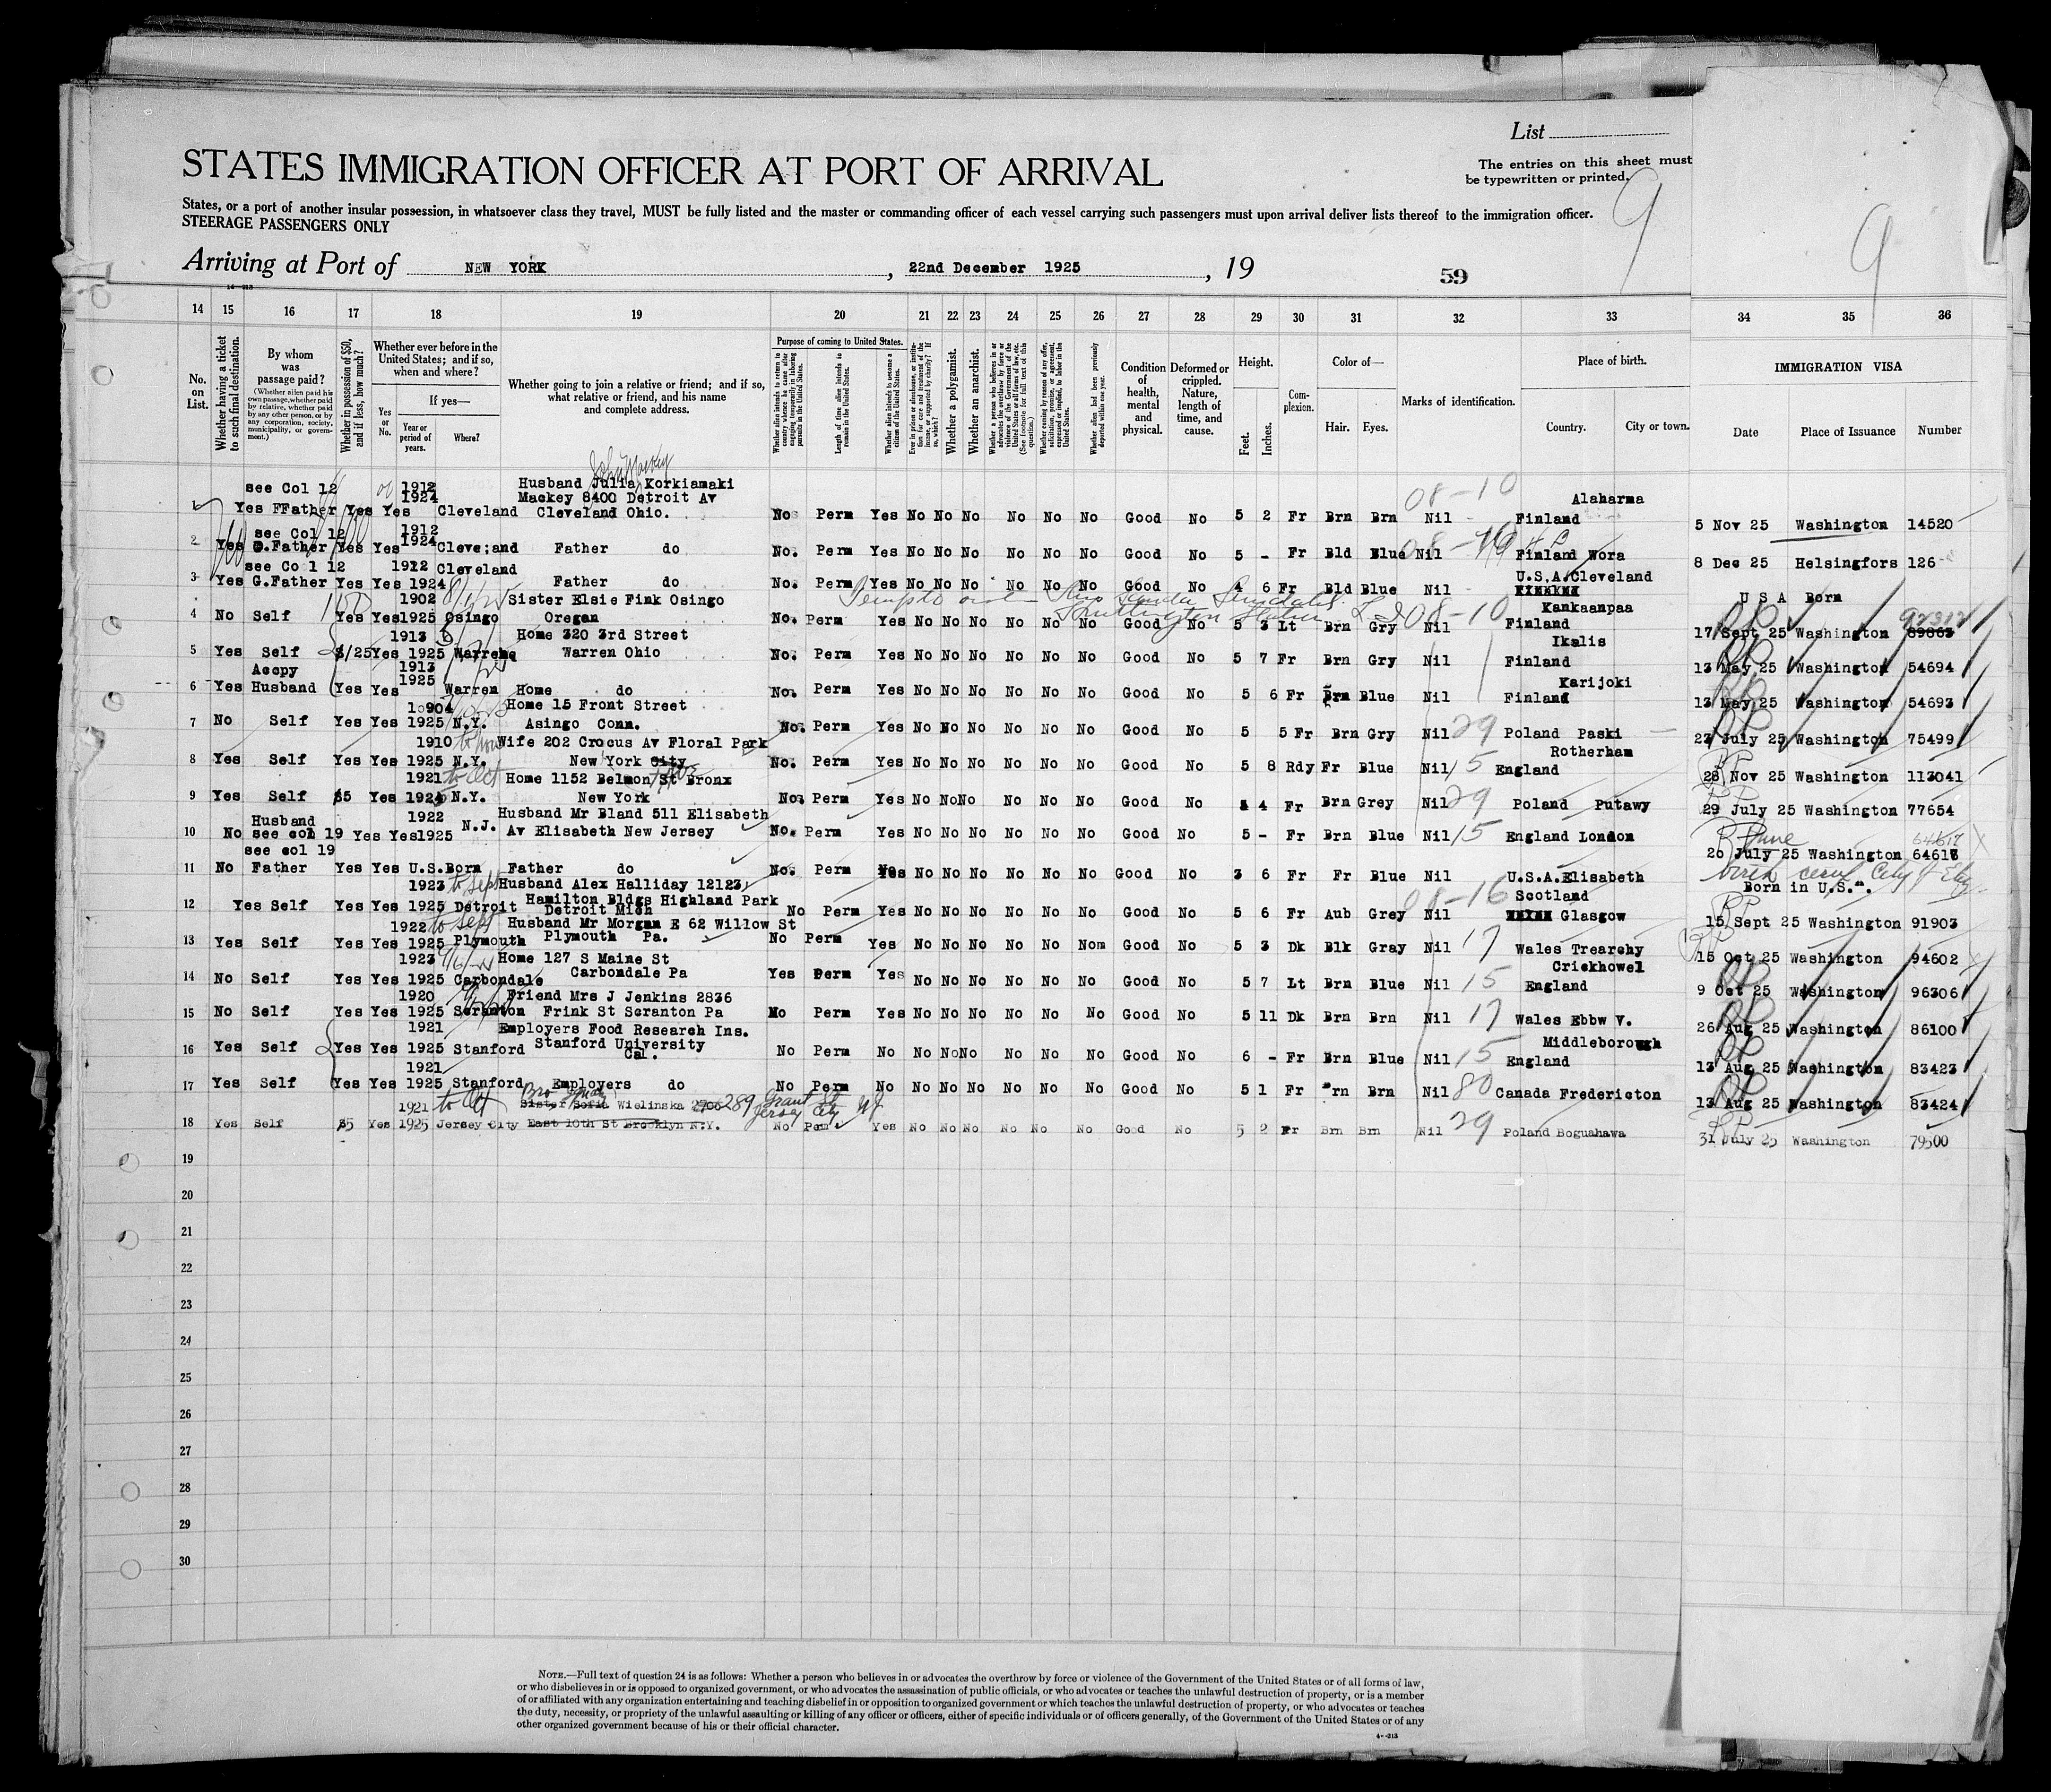 List
The entries on this sheet must
be typewritten or printed.
9
9
STATES IMMIGRATION OFFICER AT PORT OF ARRIVAL
States, or a port of another insular possession, in whatsoever class they travel, MUST be fully listed and the master or commanding officer of each vessel carrying such passengers must upon arrival deliver lists thereof to the immigration officer.
STEERAGE PASSENGERS ONLY
Arriving at Port of NEW YORK, 22nd December 1925, 19
59
14 15 16 17 18 19 20 21 22 23 24 25 26 27 28 29 30 31 32 33 34 35 36
No. on List.
Whether having a ticket to such final destination.
By whom was passage paid?
(Whether alien paid his own passage, whether paid by relative, whether paid by any other person, or by any corporation, society, municipality, or government.)
Whether in possession of $50, and if less, how much?
Whether ever before in the United States; and if so, when and where?
Yes or No.
If yes—
Year or period of years.
Where?
Whether going to join a relative or friend; and if so, what relative or friend, and his name and complete address.
Purpose of coming to United States.
Whether alien intends to return to country whence he came after engaging temporarily in laboring pursuits in the United States.
Length of time alien intends to remain in the United States.
Whether alien intends to become a citizen of the United States.
Whether a polygamist.
Whether an anarchist.
Condition of health, mental and physical.
Deformed or crippled. Nature, length of time, and cause.
Height.
Feet.
Inches.
Complexion.
Color of—
Hair.
Eyes.
Marks of identification.
Place of birth.
Country.
City or town.
IMMIGRATION VISA
Date
Place of Issuance
Number
see Col 12 1912 Husband Julia Korkiamaki
1924 Mackey 8400 Detroit Av 08-10 Alaharma
1 Yes FFather Yes Yes Cleveland Cleveland Ohio. No Perm Yes No No No No No No Good No 5 2 Fr Brn Brn Nil Finland 5 Nov 25 Washington 14520
see Col 12 1912
1924
2 Yes G.Father Yes Yes Cleve;and Father do No. Perm Yes No No No No No No Good No 5 - Fr Bld Blue Nil Finland Wora 8 Dec 25 Helsingfors 126
see Co l 12 1912 Cleveland
3 Yes G.Father Yes Yes 1924 Father do No. Perm Yes No No No No No No Good No 4 6 Fr Bld Blue Nil U.S.A.Cleveland U S A Born
1902 Sister Elsie Fink Osingo 08-10 Kankaanpaa 92312
4 No Self Yes Yes 1925 Osingo Oregan No. Perm Yes No No No No No No Good No 5 3 Lt Brn Gry Nil Finland 17 Sept 25 Washington 89863
1913 Home 320 3rd Street Ikalis
5 Yes Self $/25 Yes 1925 Warren Warren Ohio No. Perm Yes No No No No No No Good No 5 7 Fr Brn Gry Nil Finland 13 May 25 Washington 54694
Accpy 1913
1925 Karijoki
6 Yes Husband Yes Yes Warren Home do No. Perm Yes No No No No No No Good No 5 6 Fr Brn Blue Nil Finland 13 May 25 Washington 54693
1904 Home 15 Front Street
7 No Self Yes Yes 1925 N.Y. Asingo Conn. No. Perm Yes No No No No No No Good No 5 5 Fr Brn Gry Nil 29 Poland Paski 23 July 25 Washington 75499
1910 Wife 202 Crocus Av Floral Park Rotherham
8 Yes Self Yes Yes 1925 N.Y. New York City No. Perm Yes No No No No No No Good No 5 8 Rdy Fr Blue Nil 15 England 28 Nov 25 Washington 113041
1921 to Oct Home 1152 Belmon St Bronx
9 Yes Self $5 Yes 1924 N.Y. New York No. Perm Yes No No No No No No Good No 4 Fr Brn Grey Nil 29 Poland Putawy 29 July 25 Washington 77654
Husband 1922 Husband Mr Bland 511 Elisabeth
10 No see col 19 Yes Yes 1925 N.J. Av Elisabeth New Jersey No. Perm Yes No No No No No No Good No 5 - Fr Brn Blue Nil 15 England London 20 July 25 Washington 64618
June 64617
see col 19
11 No Father Yes Yes U.S.Born Father do No. Perm Yes No No No No No No Good No 3 6 Fr Fr Blue Nil U.S.A.Elisabeth Born in U.S.
birth
1923 to Sept Husband Alex Halliday 12123,
Hamilton Bldgs Highland Park 08-16 Scotland
12 Yes Self Yes Yes 1925 Detroit Detroit Mich No Perm Yes No No No No No No Good No 5 6 Fr Aub Grey Nil Glasgow 15 Sept 25 Washington 91903
1922 to Sept Husband Mr Morgan E 62 Willow St
13 Yes Self Yes Yes 1925 Plymouth Plymouth Pa. No Perm Yes No No No No No Nom Good No 5 3 Dk Blk Gray Nil 17 Wales Trearchy 15 Oct 25 Washington 94602
1923 Home 127 S Maine St Crickhowel
14 No Self Yes Yes 1925 Carbondale Carbondale Pa Yes Perm Yes No No No No No No Good No 5 7 Lt Brn Blue Nil 15 England 9 Oct 25 Washington 96306
1920 Friend Mrs J Jenkins 2836
15 No Self Yes Yes 1925 Scranton Frink St Scranton Pa No Perm Yes No No No No No No Good No 5 11 Dk Brn Brn Nil 17 Wales Ebbw V. 26 Aug 25 Washington 86100
1921 Employers Food Research Ins.
Stanford University Middleborough
16 Yes Self Yes Yes 1925 Stanford Cal. No Perm No No No No No No No Good No 6 - Fr Brn Blue Nil 15 England 13 Aug 25 Washington 83423
1921
17 Yes Self Yes Yes 1925 Stanford Employers do No Perm No No No No No No No Good No 5 1 Fr rn Brn Nil 80 Canada Fredericton 13 Aug 25 Washington 83424
1921 to Oct Sister Sofia Wielinska 289 Grant St
Jersey City NJ
18 Yes Self $5 Yes 1925 Jersey City East 10th St Brooklyn N.Y. No Perm Yes No No No No No No Good No 5 2 Fr Brn Brn Nil 29 Poland Boguahawa 31 July 25 Washington 79500
19
20
21
22
23
24
25
26
27
28
29
30
NOTE.—Full text of question 24 is as follows: Whether a person who believes in or advocates the overthrow by force or violence of the Government of the United States or of all forms of law,
or who disbelieves in or is opposed to organized government, or who advocates the assassination of public officials, or who advocates or teaches the unlawful destruction of property, or is a member
of or affiliated with any organization entertaining and teaching disbelief in or opposition to organized government or which teaches the unlawful destruction of property, or who advocates or teaches
the duty, necessity, or propriety of the unlawful assaulting or killing of any officer or officers, either of specific individuals or of officers generally, of the Government of the United States or of any
other organized government because of his or their official character.